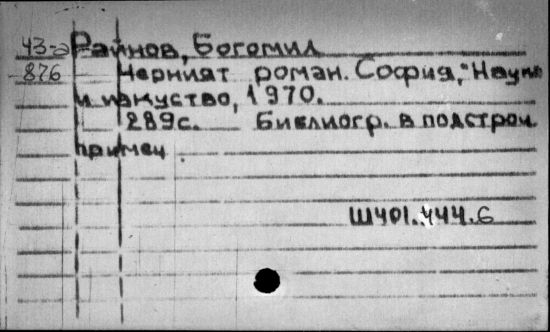 43-а Райнов, Богомил
876 Черният роман. София, "Наука
и изкуство, 1970.
289с. Библиогр. в подстроч.
примеч.
Ш401.444.6